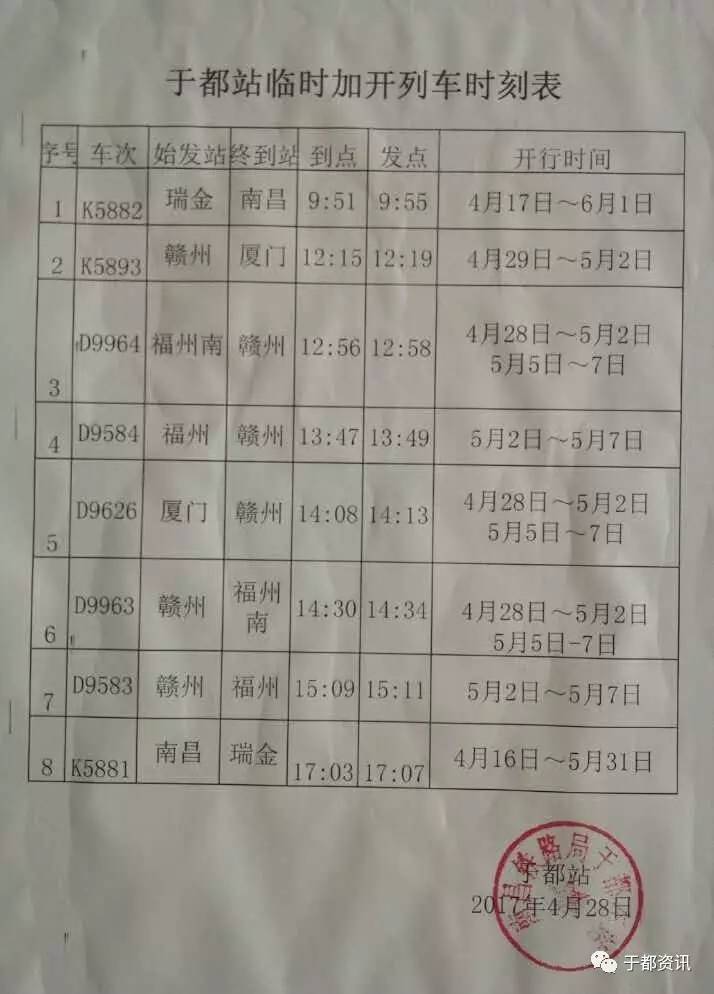 于都站临时加开列车时刻表
序号 车次 始发站 终到站 到点 发点 开行时间
1 K5882 瑞金 南昌 9:51 9:55 4月17日～6月1日
2 K5893 赣州 厦门 12:15 12:19 4月29日～5月2日
3 D9964 福州南 赣州 12:56 12:58 4月28日～5月2日
5月5日～7日
4 D9584 福州 赣州 13:47 13:49 5月2日～5月7日
5 D9626 厦门 赣州 14:08 14:13 4月28日～5月2日
5月5日～7日
6 D9963 赣州 福州 14:30 14:34 4月28日～5月2日
南 5月5日-7日
7 D9583 赣州 福州 15:09 15:11 5月2日～5月7日
8 K5881 南昌 瑞金 17:03 17:07 4月16日～5月31日
南昌铁路局于都
于都站
2017年4月28日
于都资讯